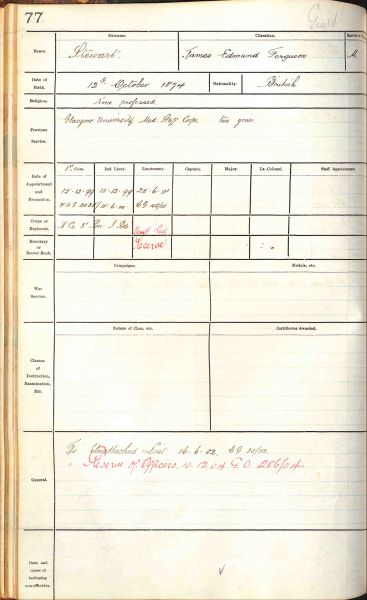 77
Surname.
Christian.
Name.
Stewart.
James Edmund Ferguson
Date of Birth.
12th October 1874
Nationality.
British
Religion.
None professed
Previous Service.
Glasgow University Med. Staff Corps. two years.
1st Com.
2nd Lieut.
Lieutenant.
Captain.
Major.
Lt.-Colonel.
Staff Appointments.
Date of Appointment and Promotion.
15-12-99
15-12-99
25-6-01
15-6-00
Corps or Regiment.
Honorary or Brevet Rank.
Reserve
Campaigns.
Medals, etc.
War Service.
Nature of Class, etc.
Certificates Awarded.
Classes of Instruction, Examination, Etc.
General.
To Unattached List 16.6.02.
Reserve of Officers 10.12.04 G.O. 286/04.
Date and cause of becoming non-effective.